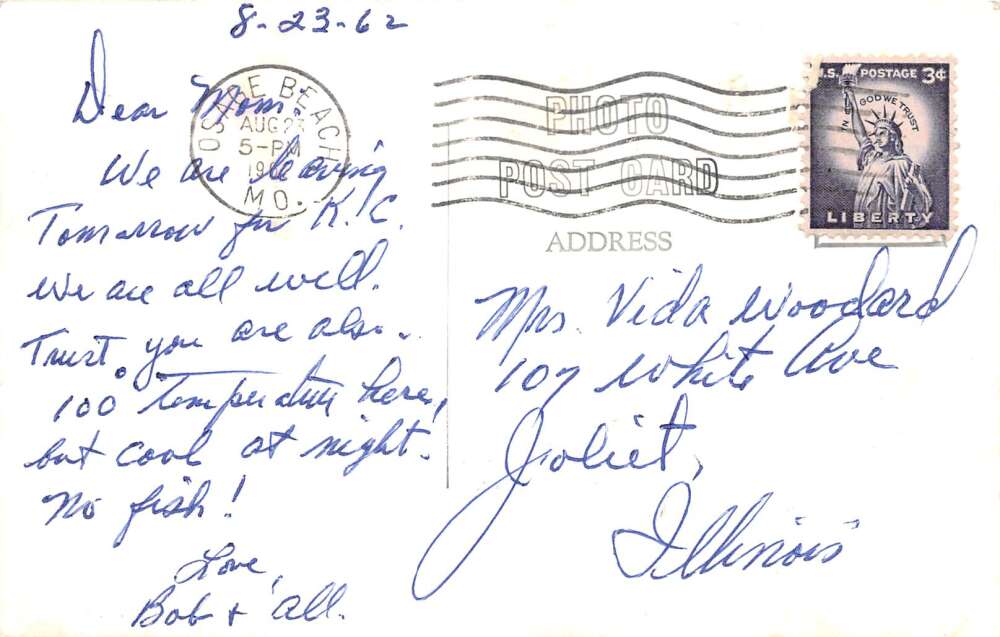 8-23-62
Dear Mom:
We are leaving
Tomorrow for K.C.
We are all well.
Trust you are also.
100° temperature here,
but cool at night.
No fish!
Love,
Bob & all.
OSAGE BEACH
AUG 23
5-PM
MO.
PHOTO
POST CARD
ADDRESS
U.S. POSTAGE 3¢
IN GOD WE TRUST
LIBERTY
Mrs. Vida Woodard
107 White Ave
Joliet,
Illinois